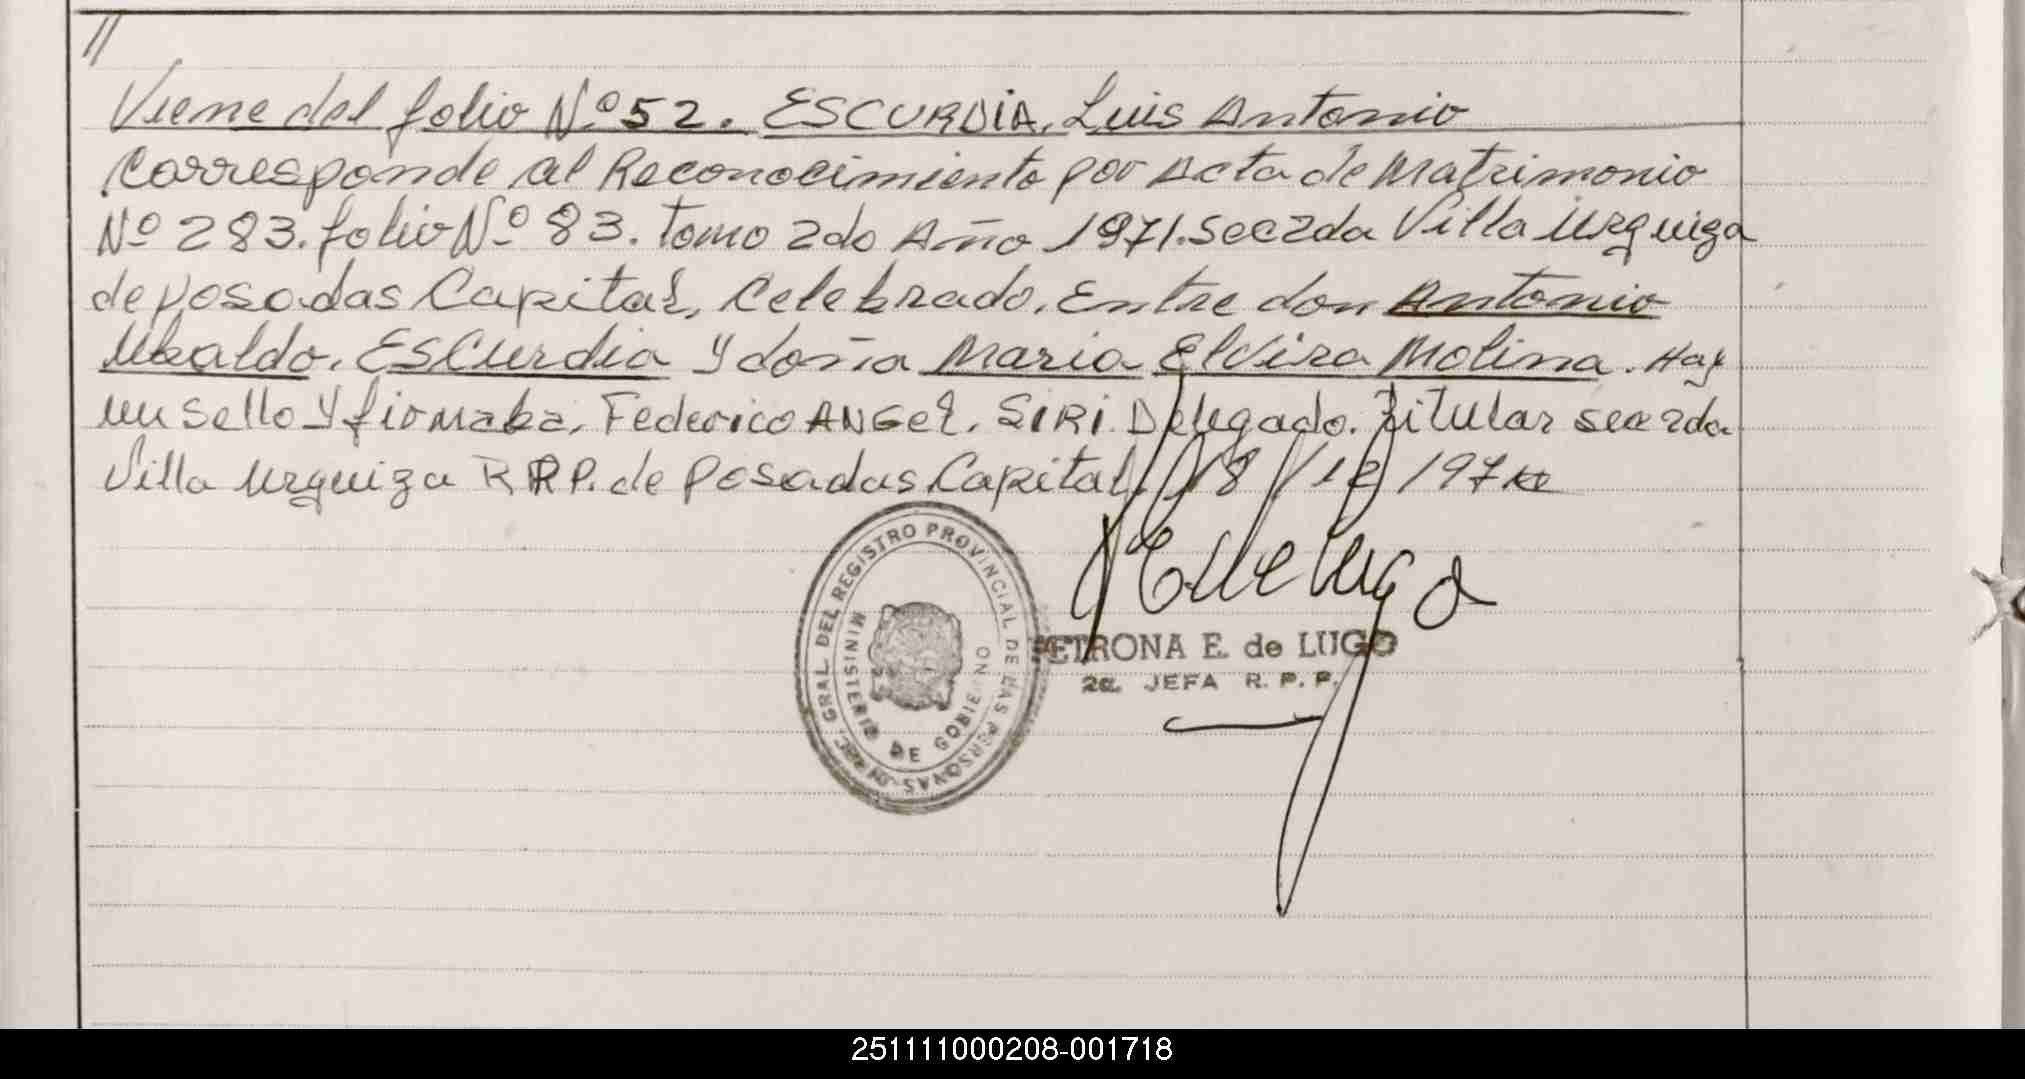 //
Viene del folio Nº 52. ESCURDIA, Luis Antonio
Corresponde al Reconocimiento por Acta de Matrimonio
Nº 283. folio Nº 83. Tomo 2do Año 1971. Sec 2da Villa Urquiza
de Posadas Capital, Celebrado, Entre don Antonio
Ubaldo, ESCurdia y doña Maria Elvira Molina. Hay
un Sello y firmaba, Federico ANGel, SIRI Delegado. Titular sec 2da
Villa Urquiza R.R.P. de Posadas Capital, 18/12/197
GRAL. DEL REGISTRO PROVINCIAL DE LAS PERSONAS
MINISTERIO DE GOBIERNO
PETRONA E. de LUGO
2a. JEFA R. P. P.
251111000208-001718